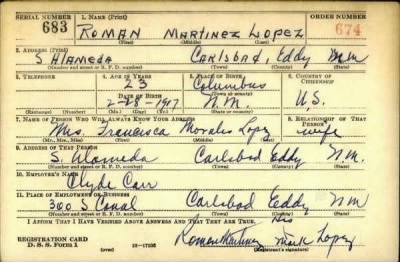 SERIAL NUMBER 1. NAME (Print) ORDER NUMBER
683 ROMAN MARTINEZ LOPEZ 674
(First) (Middle) (Last)
2. ADDRESS (Print)
S ALAMEDA CARLSBAD EDDY N.M.
(Number and street or R. F. D. number) (Town) (County) (State)
3. TELEPHONE 4. AGE IN YEARS 5. PLACE OF BIRTH 6. COUNTRY OF CITIZENSHIP
23 Columbus
DATE OF BIRTH (Town or county)
2-28-1917 N.M. U.S.
(Exchange) (Number) (Mo.) (Day) (Yr.) (State or country)
7. NAME OF PERSON WHO WILL ALWAYS KNOW YOUR ADDRESS 8. RELATIONSHIP OF THAT PERSON
Mrs. Francisca Morales Lopez wife
(Mr., Mrs., Miss) (First) (Middle) (Last)
9. ADDRESS OF THAT PERSON
S. Alameda Carlsbad Eddy N.M.
(Number and street or R. F. D. number) (Town) (County) (State)
10. EMPLOYER'S NAME
Clyde Carr
11. PLACE OF EMPLOYMENT OR BUSINESS
360 S Canal Carlsbad Eddy N M
(Number and street or R. F. D. number) (Town) (County) (State)
I AFFIRM THAT I HAVE VERIFIED ABOVE ANSWERS AND THAT THEY ARE TRUE. His
REGISTRATION CARD Roman Martinez Mark Lopez
D. S. S. Form 1 16-17500 (Registrant's signature)